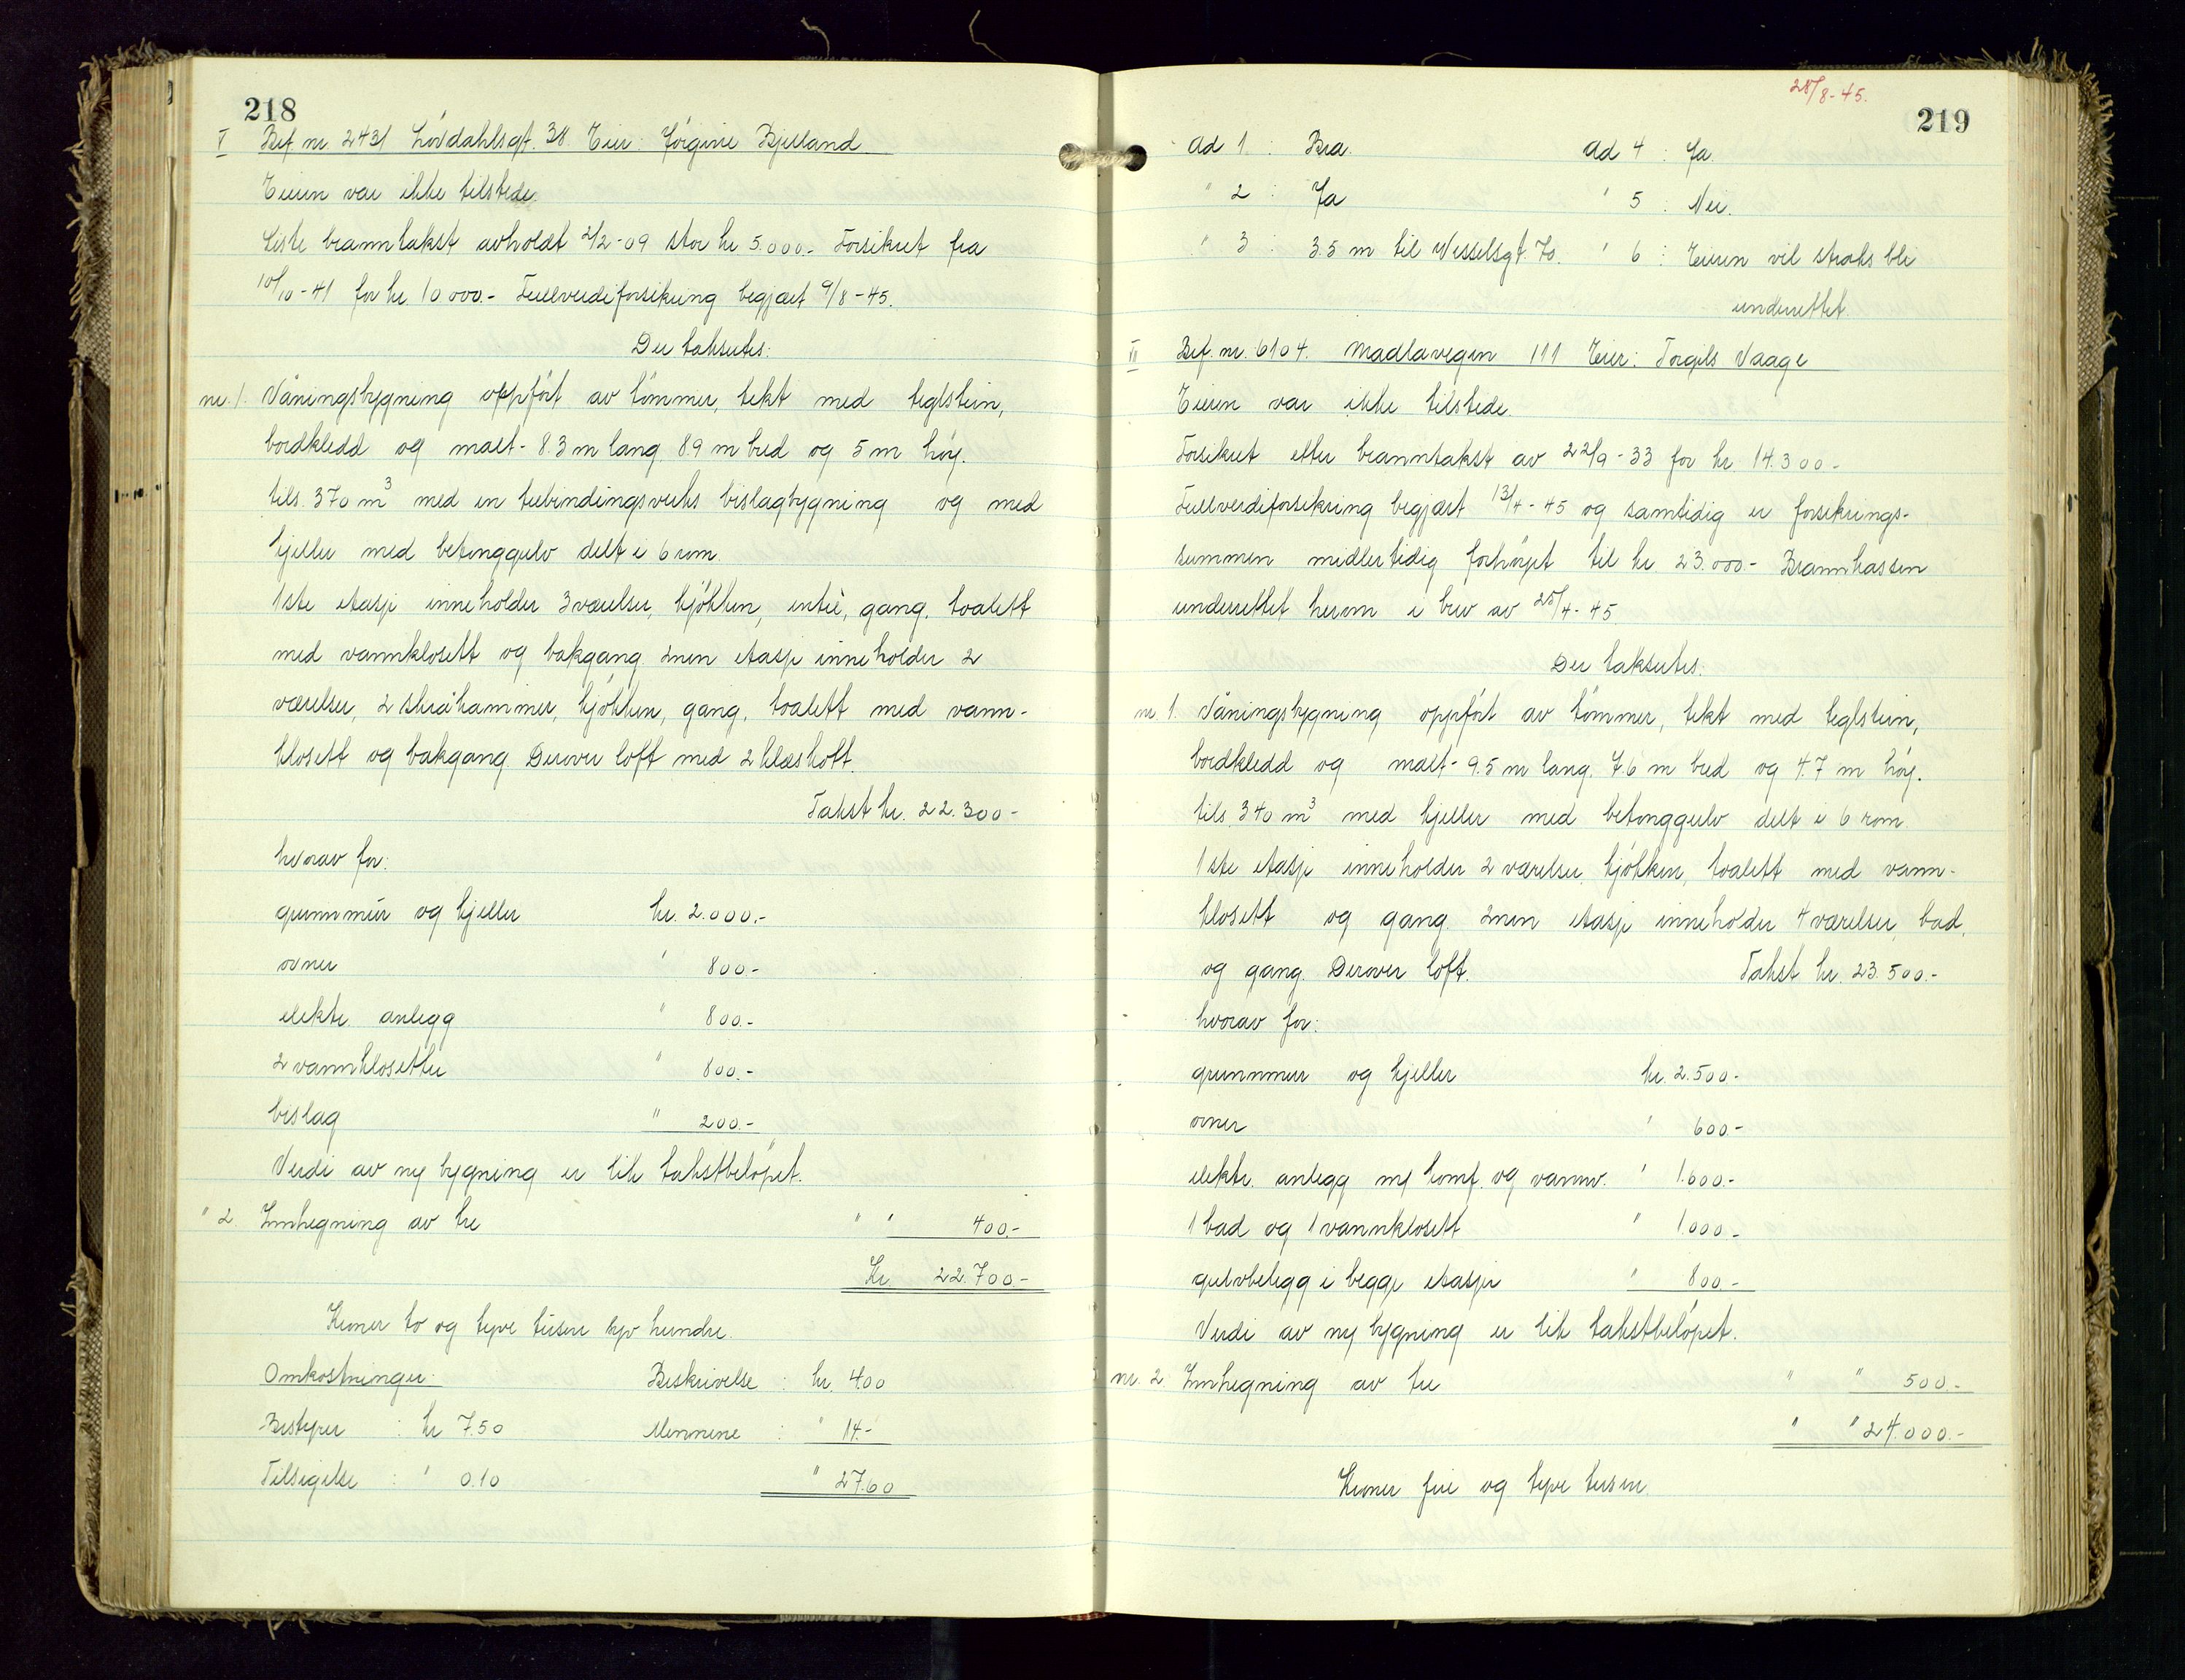 218
V Bef. nr. 2431 Lövdahlsgt. 38. Eier: Jörgine Bjelland
Eieren var ikke tilstede.
Siste branntakst avholdt 2/2-09 stor kr. 5.000.- Forsikret fra
10/10-41 for kr. 10 000.- Fullverdiforsikring begjært 9/8-45.
Der takseres:
nr. 1. Våningsbygning oppfört av tömmer, tekt med teglstein,
bordkledd og malt - 8.3 m lang 8.9 m bred og 5 m höy.
tils. 370 m³ med en utbindingsverks bislagbygning og med
kjeller med betonggulv delt i 6 rom.
1ste etasje inneholder 3 værelser, kjökken, entré, gang, toalett
med vannklosett og bakgang. 2nen etasje inneholder 2
værelser, 2 skråkammer, kjökken, gang, toalett med vann-
klosett og bakgang. Derover loft med 2 kleskott.
Takst kr. 22.300-
hvorav for:
grunnmur og kjeller kr. 2.000.-
ovner " 800.-
elektr. anlegg " 800.-
2 vannklosetter " 800.-
bislag " 200.-
Verdi av ny bygning er lik takstbelöpet.
" 2 Innhegning av tre " " 400.-
Kr. 22.700.-
Kroner to og tyve tusen syv hundre.
Omkostninger: Beskrivelse : kr. 4.00
Bestyrer : kr 7.50 Mennene : " 14.-
Tilsigelse : " 0.10 " 27.60
28/8-45.
219
Ad 1 : Bra. Ad 4 : Ja.
" 2 : Ja " 5 : Nei.
" 3 : 3.5 m til Wesselsgt. 70. " 6 : Eieren vil straks bli
underrettet.
VI Bef. nr. 6104. Madlavegen 111 Eier: Torgils Vaage
Eieren var ikke tilstede.
Forsikret etter branntakst av 22/9-33 for kr. 14.300-
Fullverdiforsikring begjært 13/4-45 og samtidig er forsikrings-
summen midlertidig forhöyet til kr. 23.000.- Brannkassen
underrettet herom i brev av 25/4-45
Der takseres.
nr. 1. Våningsbygning oppfört av tömmer, tekt med teglstein,
bordkledd og malt - 9.5 m lang. 7.6 m bred og 4.7 m höy.
tils. 340 m³ med kjeller med betonggulv delt i 6 rom.
1ste etasje inneholder 2 værelser, kjökken, toalett med vann-
klosett og gang. 2nen etasje inneholder 4 værelser, bad,
og gang. Derover loft. Takst kr. 23.500.-
hvorav for:
grunnmur og kjeller kr. 2.500.-
ovner " 600.-
elektr. anlegg m/ komf. og vannv. " 1.600.-
1 bad og 1 vannklosett " 1.000.-
gulvbelegg i begge etasjer " 800.-
Verdi av ny bygning er lik takstbelöpet.
nr. 2. Innhegning av tre " " 500.-
" " 24.000.-
Kroner fire og tyve tusen.